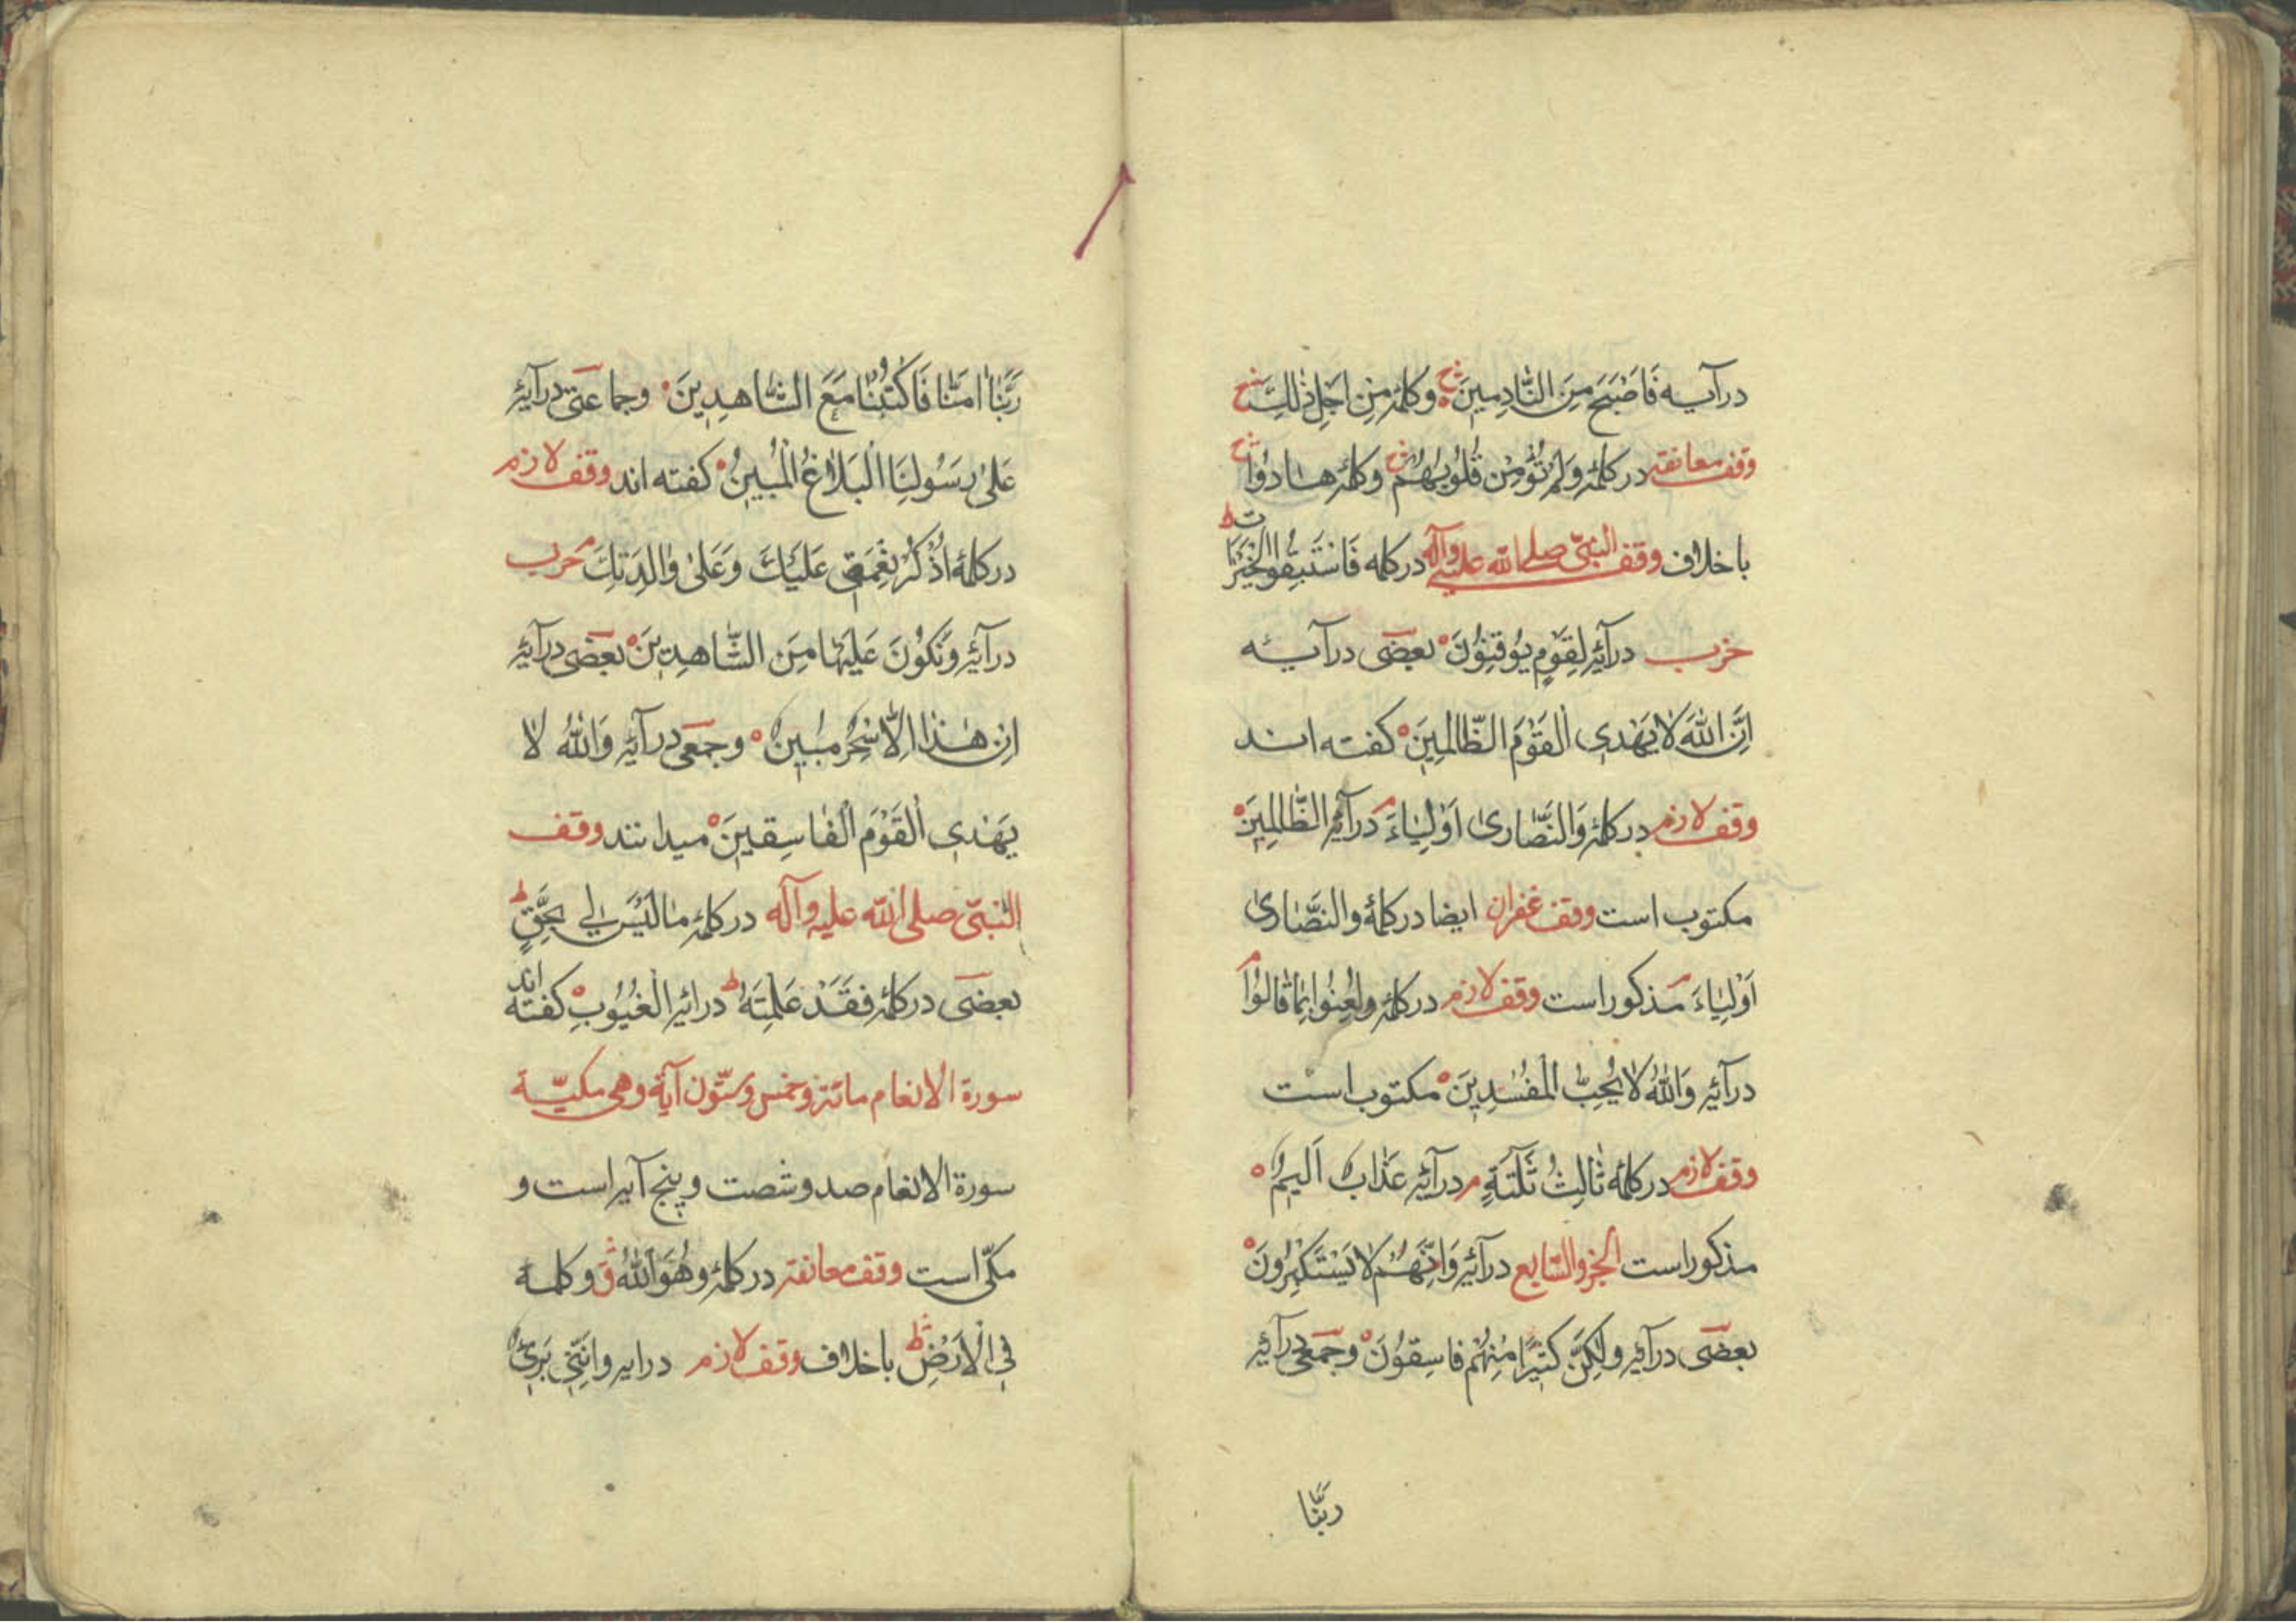 درآیه فَاَصْبَحَ مِنَ النَّادِمِینَ وکلمۀ مِنْ اَجْلِ ذٰلِكَ
وقف معانقه درکلمۀ وَلَمْ تُؤْمِنْ قُلُوبُهُمْ وکلمۀ هَادُوا
باخلاف وقف النبیّ صلی الله علیه وآله درکلمه فَاسْتَبِقُوا الْخَیْرَات ط
حزب درآیۀ لِقَوْمٍ یُوقِنُونَ بعضی درآیه
اِنَّ اللّٰهَ لَا یَهْدِی الْقَوْمَ الظَّالِمِینَ کفته اند
وقف لازم درکلمۀ وَالنَّصَارٰی اَوْلِیَاءَ م درآیۀ الظَّالِمِینَ
مکتوب است وقف غفران ایضا درکلمۀ والنَّصَارٰی
اَوْلِیَاءَ م مذکور است وقف لازم درکلمۀ ولُعِنُوا بِمَا قَالُوا م
درآیۀ وَاللّٰهُ لَا یُحِبُّ الْمُفْسِدِینَ مکتوب است
وقف لازم درکلمۀ ثَالِثُ ثَلٰثَةٍ م درآیۀ عَذَابٌ اَلِیمٌ
مذکور است الجزو السّابع درآیۀ وَاَنَّهُمْ لَا یَسْتَکْبِرُونَ
بعضی درآیۀ ولٰکِنَّ کَثِیرًا مِنْهُمْ فَاسِقُونَ وجمعی درآیۀ
ربَّنَا
رَبَّنَا اٰمَنَّا فَاکْتُبْنَا مَعَ الشَّاهِدِینَ وجماعتی درآیۀ
عَلٰی رَسُولِنَا الْبَلَاغُ الْمُبِینُ کفته اند وقف لازم
درکلمۀ اذْکُرْ نِعْمَتِی عَلَیْكَ وَعَلٰی وَالِدَتِكَ م حزب
درآیۀ وَنَکُونَ عَلَیْهَا مِنَ الشَّاهِدِینَ بعضی درآیۀ
اِنْ هٰذَا اِلَّا سِحْرٌ مُبِینٌ وجمعی درآیۀ وَاللّٰهُ لَا
یَهْدِی الْقَوْمَ الْفَاسِقِینَ میدانند وقف
النبیّ صلی الله علیه وآله درکلمۀ مَا لَیْسَ لِی بِحَقٍّ ط
بعضی درکلمۀ فَقَدْ عَلِمْتَهُ ط درایۀ الْغُیُوبِ کفته اند
سورة الانعام مائة وخمس وستّون آیة وهی مکیّة
سورة الانعام صد وشصت وپنج آیه است و
مکّی است وقف معانقه درکلمۀ وهُوَ اللّٰهُ ق وکلمه
فِی الْاَرْضِ ط باخلاف وقف لازم درایه وانَّنِی بَرِیءٌ